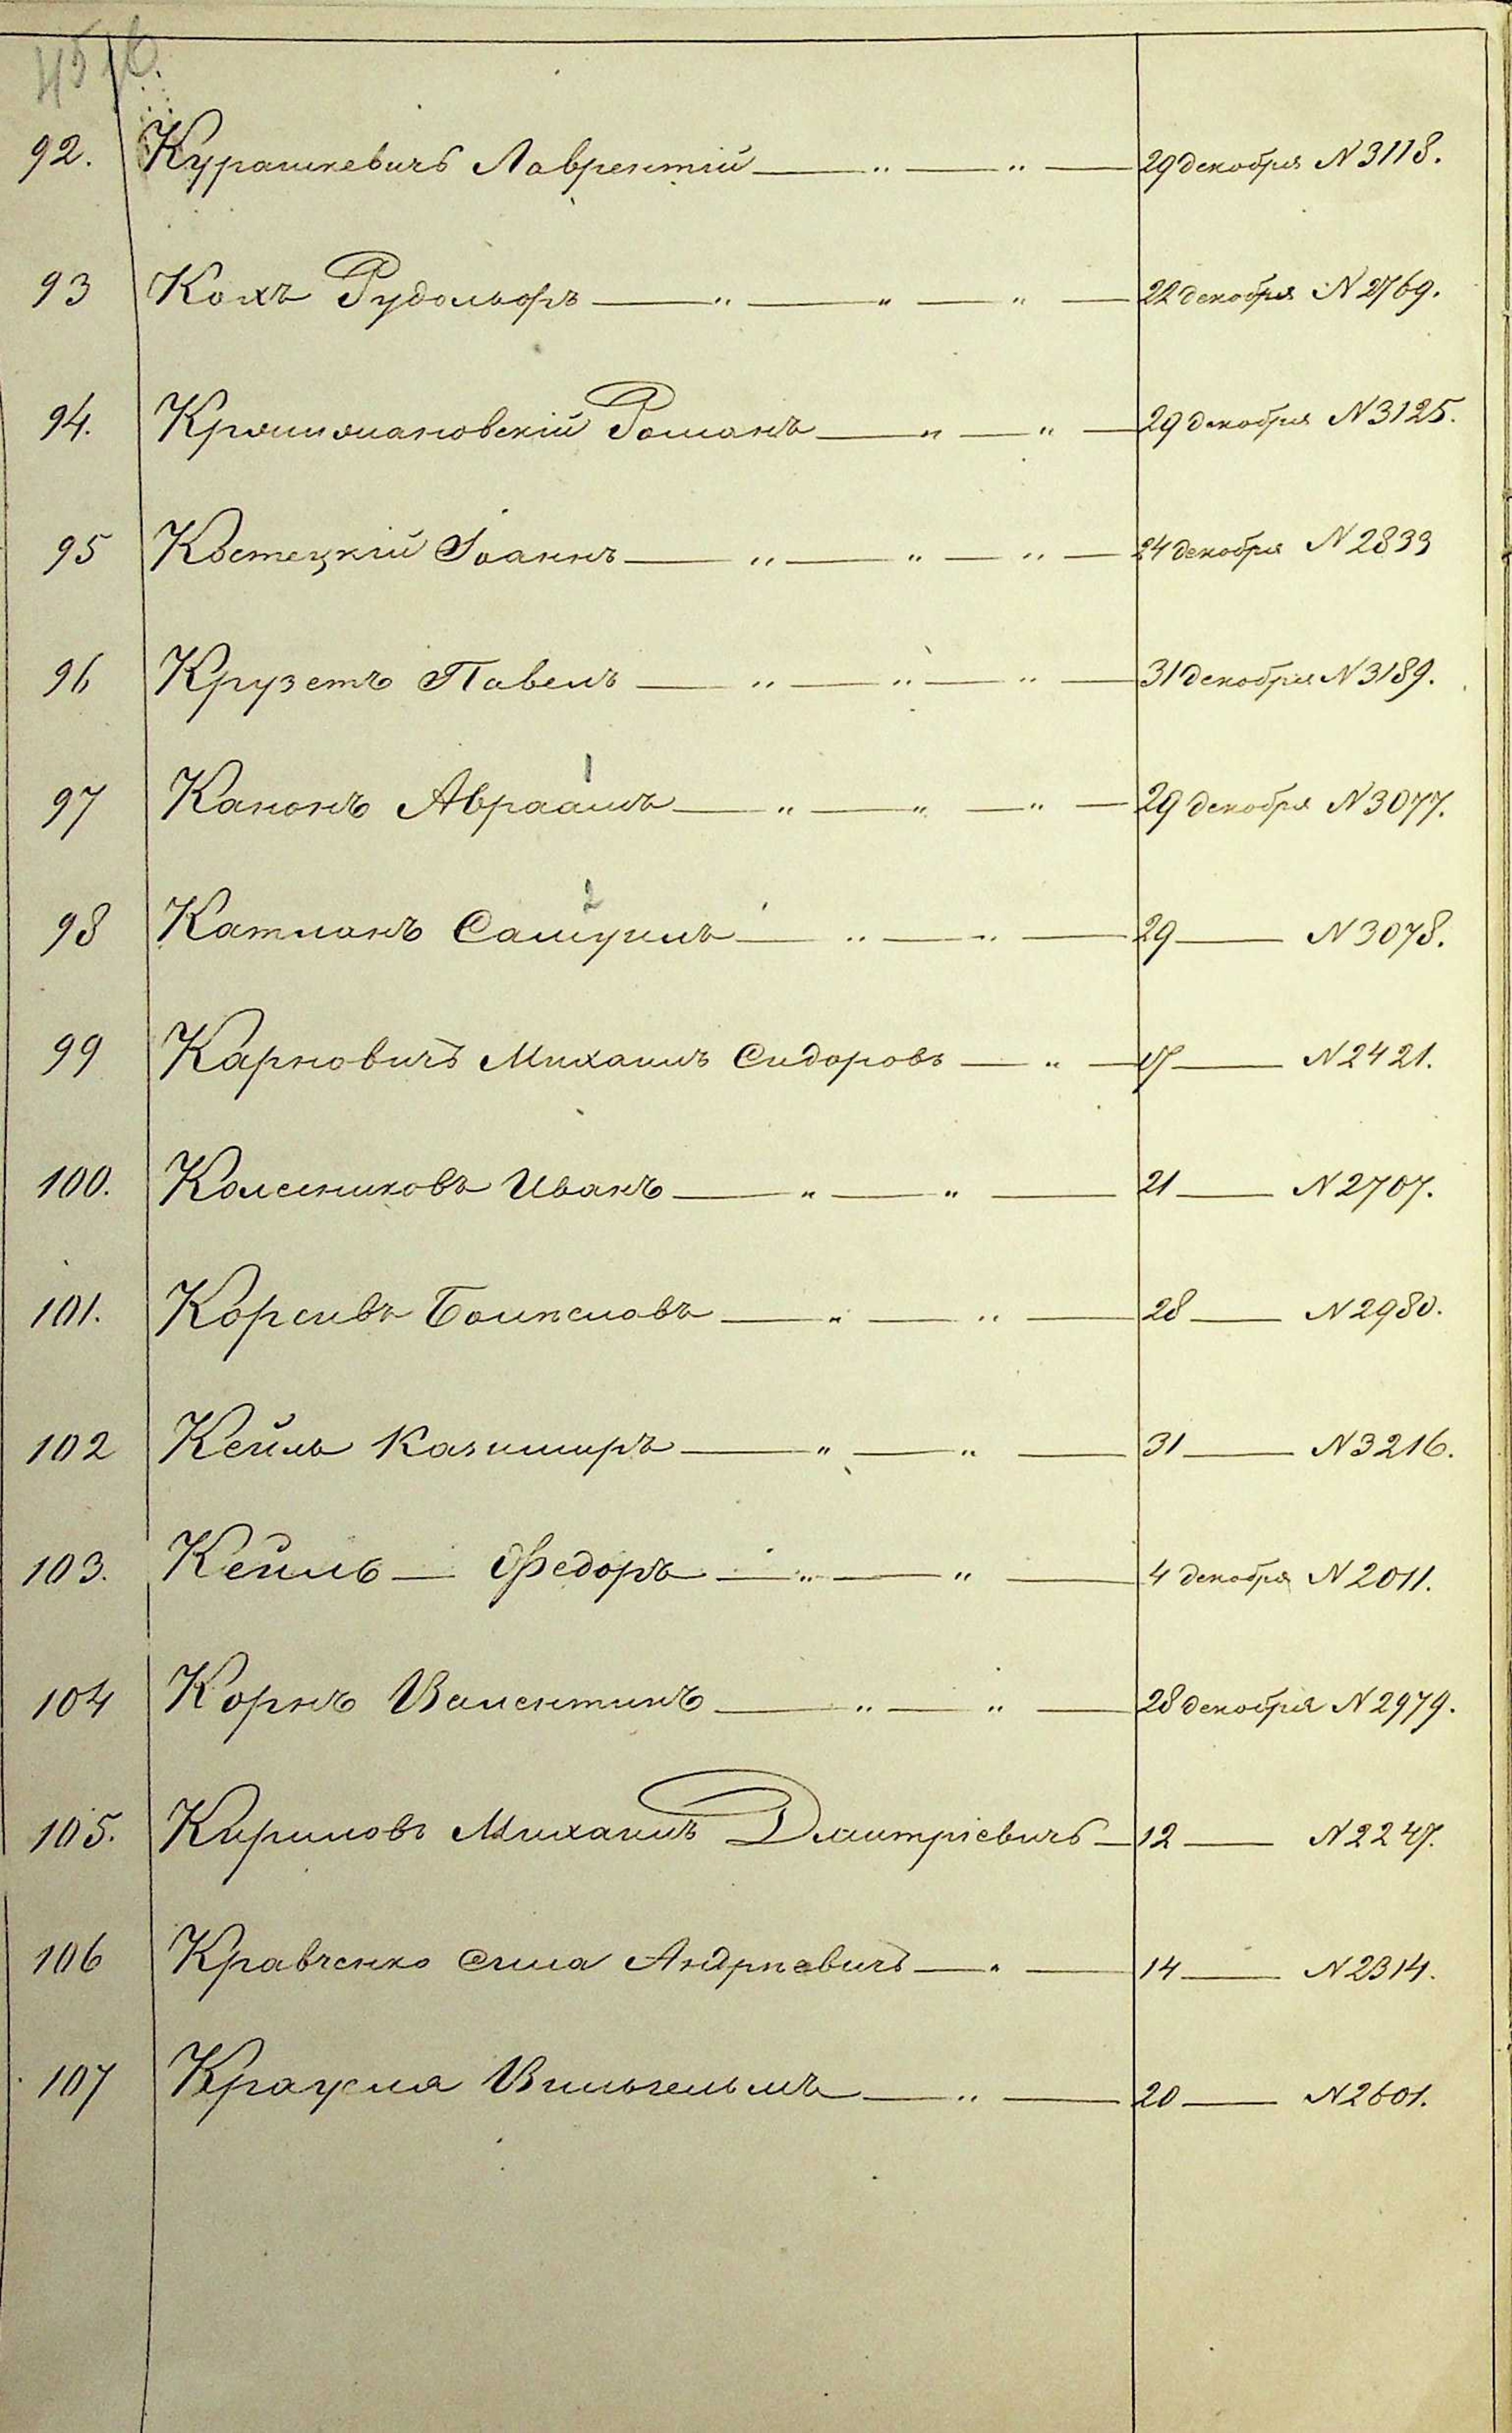 92. Курашкевичъ Лаврентій — " — " — 29 декабря N 3118.
93 Кохъ Рудольфъ — " — " — " — 22 декабря N 2769.
94. Романъ — " — " — 29 декабря N 3125.
95 Костецкій Іоаннъ — " — " — " — 24 декабря N 2833
96 Крузетъ Павелъ — " — " — " — 31 декабря N 3189.
1
97 Канонъ Авраамъ — " — " — " — 29 декабря N 3077.
2
98 Катманъ Самуилъ — " — " — 29 — N 3078.
99 Карновичъ Михаилъ Сидоровъ — " — 17 — N 2421.
100. Колесниковъ Иванъ — " — " — 21 — N 2707.
101. Корсивъ Болиславъ — " — " — 28 — N 2980.
102 Кейль Казимиръ — " — " — 31 — N 3216.
103. Кейль — Федоръ — " — " — 4 декабря N 2011.
104 Корнъ Валентинъ — " — " — 28 декабря N 2979.
105. Кириловъ Михаилъ Дмитріевичъ — 12 — N 2247.
106 Кравченко Сила Андреевичъ — " — 14 — N 2314.
107 Краузля Вильгельмъ — " — 20 — N 2601.